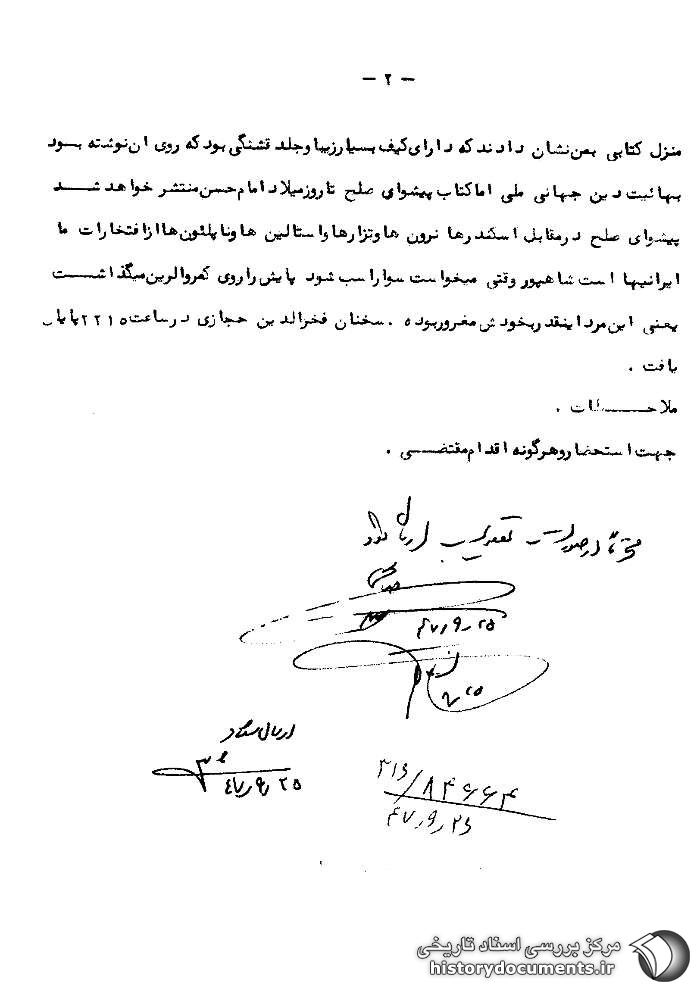 - ۲ -
منزل کتابی بمن نشان دادند که دارای کیف بسیار زیبا و جلد قشنگی بود که روی ان نوشته بود
بهائیت دین جهانی ملی اما کتاب پیشوای صلح تا روز میلاد امام حسن منتشر خواهد شد
پیشوای صلح در مقابل اسکندرها نرون ها و تزارها و استالین ها و ناپلئون ها از افتخارات ما
ایرانیها است شاهپور وقتی میخواست سوار اسب شود پایش را روی کمر والرین میگذاشت
یعنی این مرد اینقدر بخودش مغرور بوده . سخنان فخرالدین حجازی در ساعت ۲۲۱۵ پایان
یافت .
ملاحظات .
جهت استحضار و هرگونه اقدام مقتضی .
ارسال
۴۷٫۹٫۲۵
۹٫۲۵
ارسال
۴۷٫۹٫۲۵
۳۱۶/۸۴۶۶۴
۴۷٫۹٫۲۶
مرکز بررسی اسناد تاریخی
historydocuments.ir